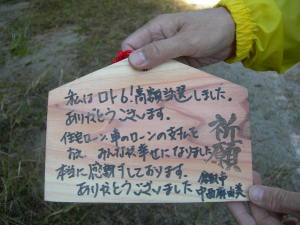 私はロト6!高額当選しました。
ありがとうございます。
住宅ローン、車のローンの支払も
おえ みんなが幸せになりました
本当に感謝しております。
ありがとうございました
祈願
倉敷市